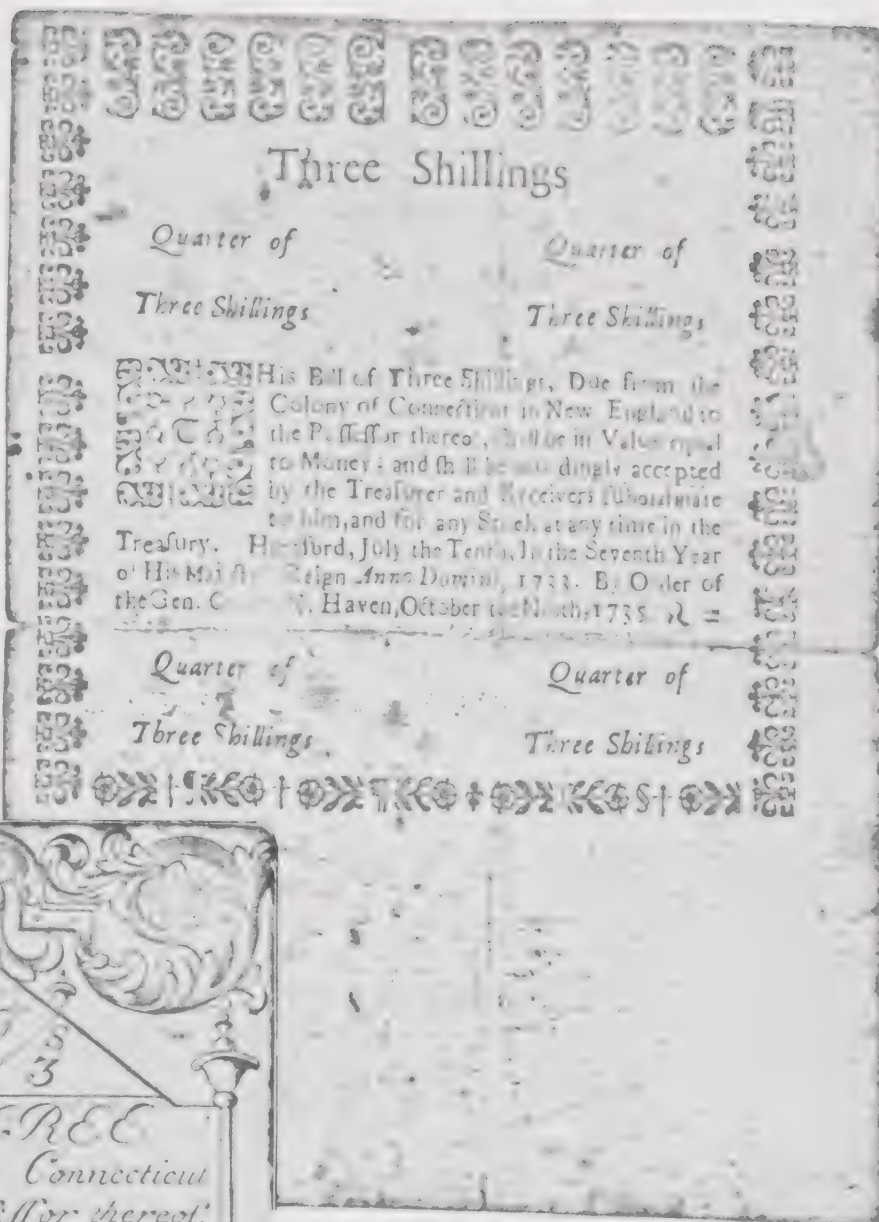 Three Shillings
Quarter of Quarter of
Three Shillings Three Shillings
THis Bill of Three Shillings, Due from the
Colony of Connecticut in New England to
the Poſſeſſor thereof, ſhall be in Value equal
to Money; and ſhall be accordingly accepted
by the Treaſurer and Receivers ſubordinate
to him, and for any Stock at any time in the
Treaſury. Hartford, July the Tenth, In the Seventh Year
of His Majeſty's Reign Anno Domini, 1733. By Order of
the Gen. N. Haven, October the 1735.
Quarter of Quarter of
Three Shillings Three Shillings
3
REE
Connecticut
ſſor thereof